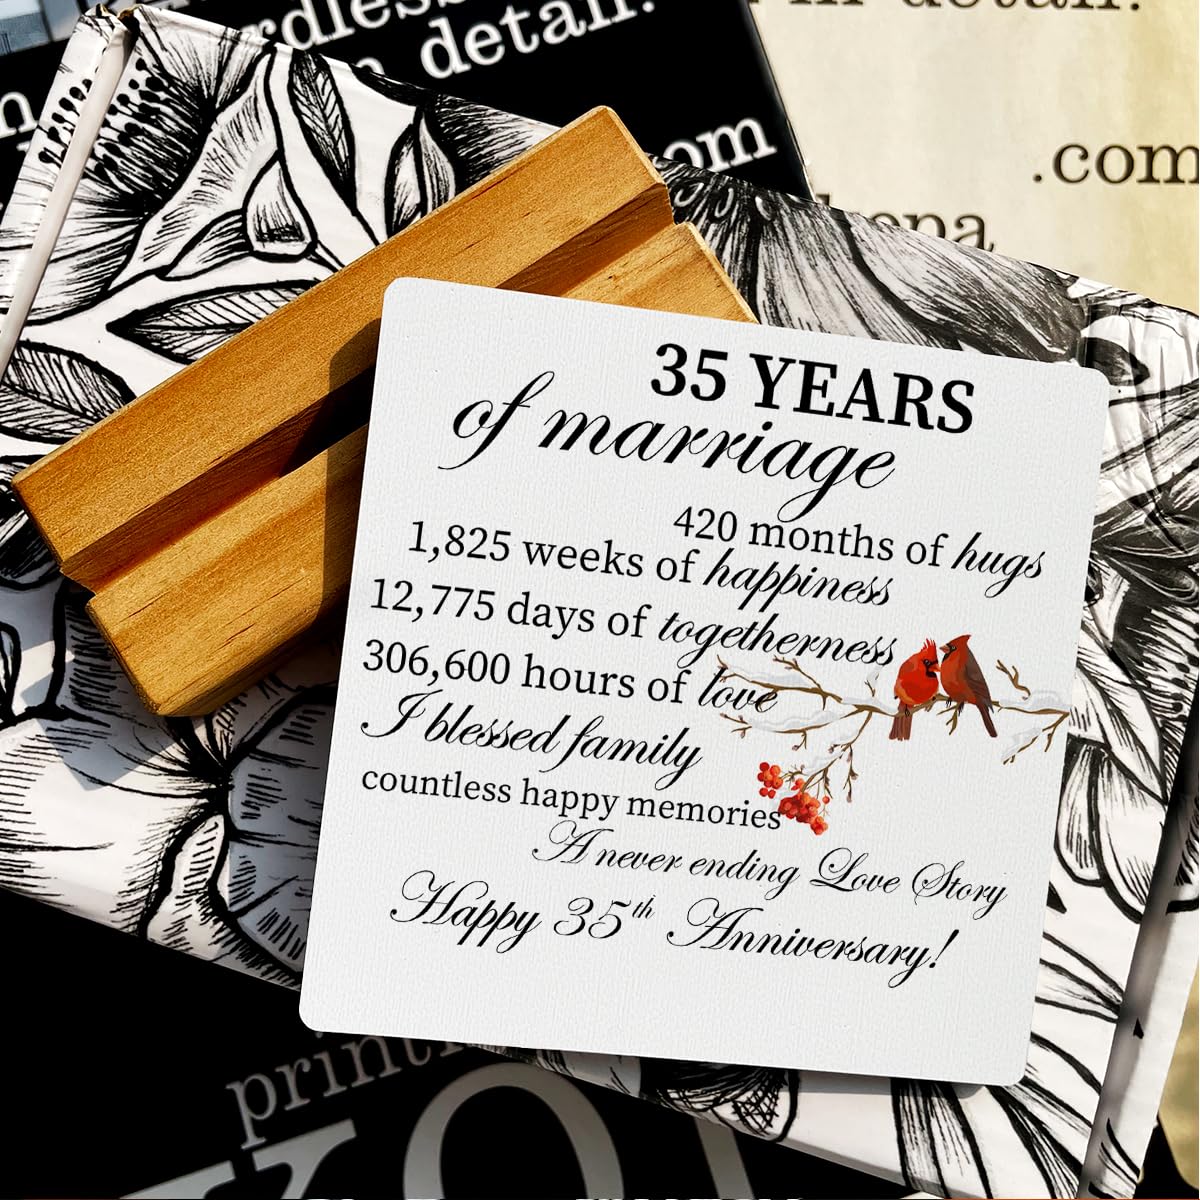 rdless
n detail.
n
com
in detail.
.com
35 YEARS
of marriage
420 months of hugs
1,825 weeks of happiness
12,775 days of togetherness
306,600 hours of love
I blessed family
countless happy memories
A never ending Love Story
Happy 35th Anniversary!